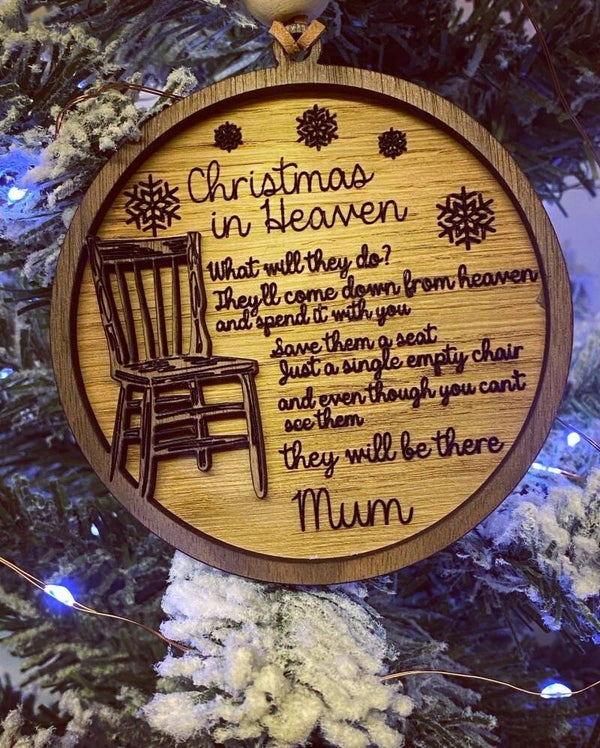 Christmas
in Heaven
What will they do?
They'll come down from heaven
and spend it with you
Save them a seat
Just a single empty chair
and even though you cant
see them
they will be there
Mum